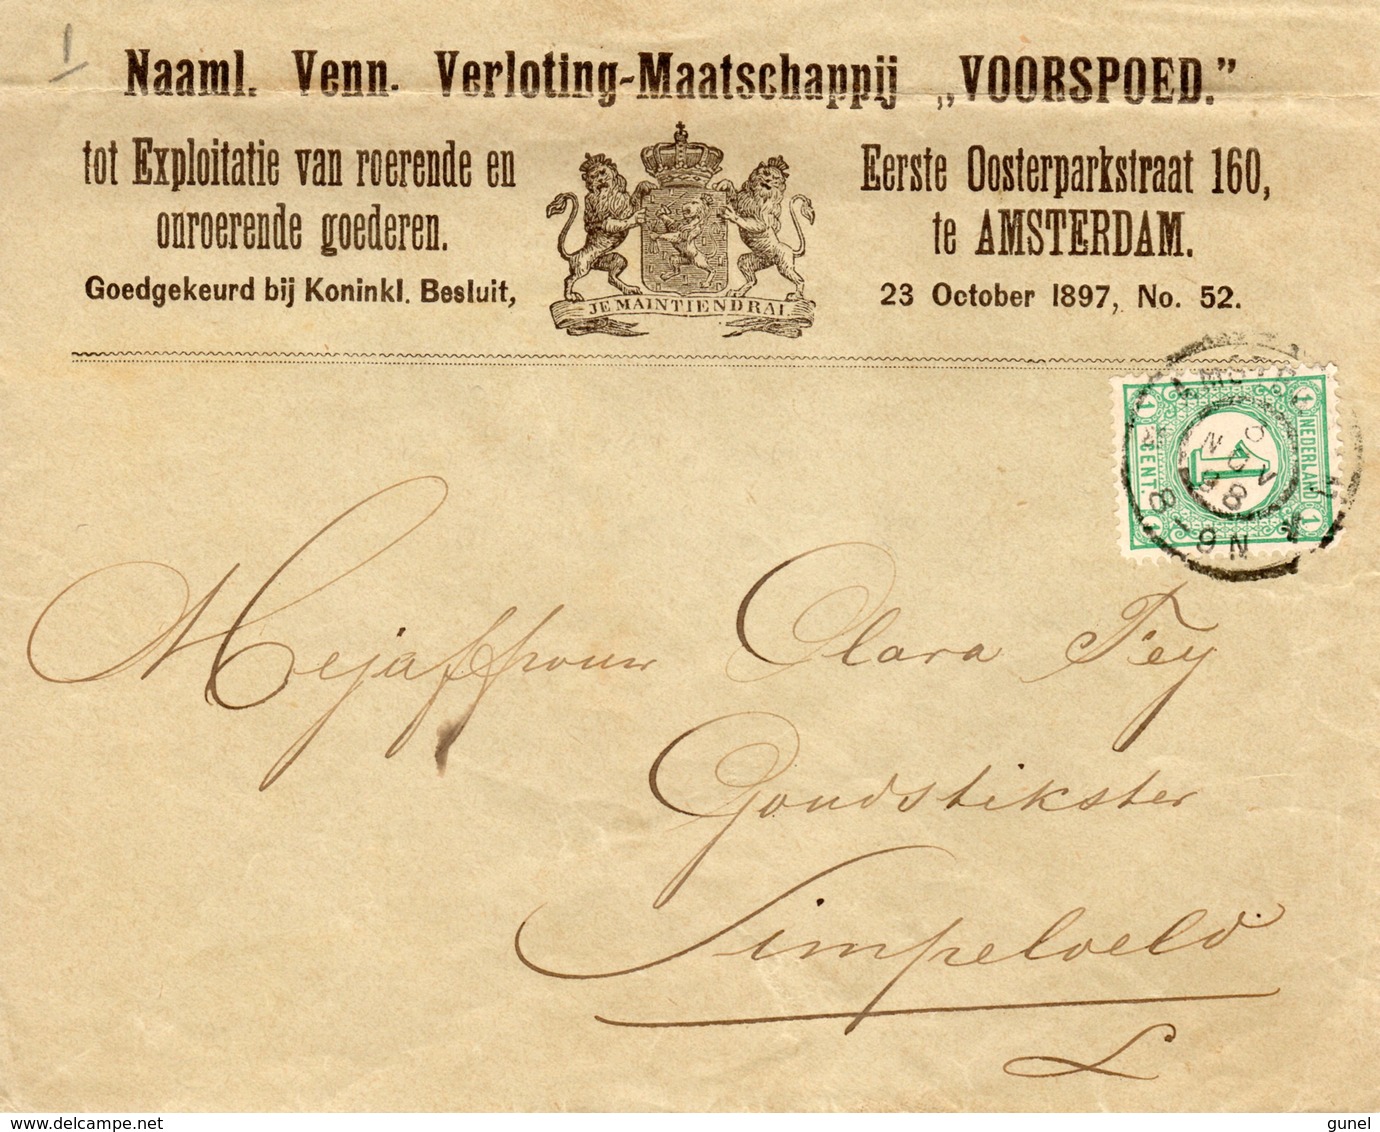 1
Naaml. Venn. Verloting-Maatschappij „VOORSPOED."
tot Exploitatie van roerende en
onroerende goederen.
Goedgekeurd bij Koninkl. Besluit,
JE MAINTIENDRAI
Eerste Oosterparkstraat 160,
te AMSTERDAM.
23 October 1897, No. 52.
1 NEDERLAND 1
1
1 CENT. 1
NOV
98
8-9N
Mejuffrouw Clara Fey
Goudstikster
Simpelveld
L
delcampe.net
gunel